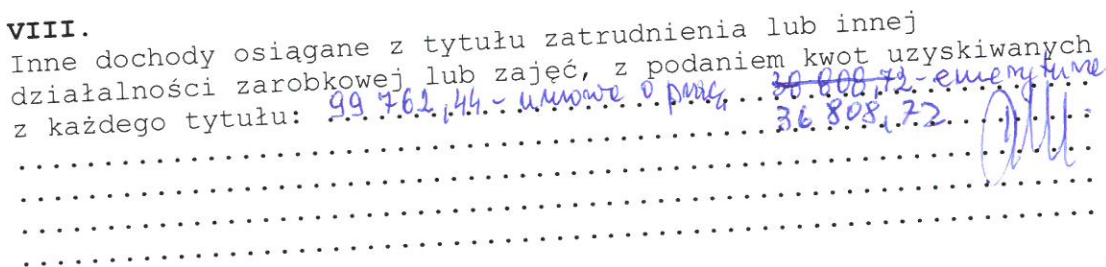 VIII.
Inne dochody osiągane z tytułu zatrudnienia lub innej
działalności zarobkowej lub zajęć, z podaniem kwot uzyskiwanych
z każdego tytułu: 99 762,44 - umowa o pracę 30 808,72 - emerytura
36 808,72